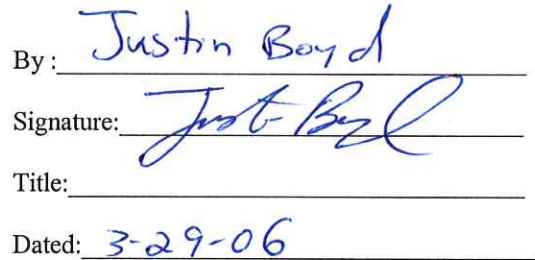 By: Justin Boyd
Signature: Just Boyd
Title:
Dated: 3-29-06